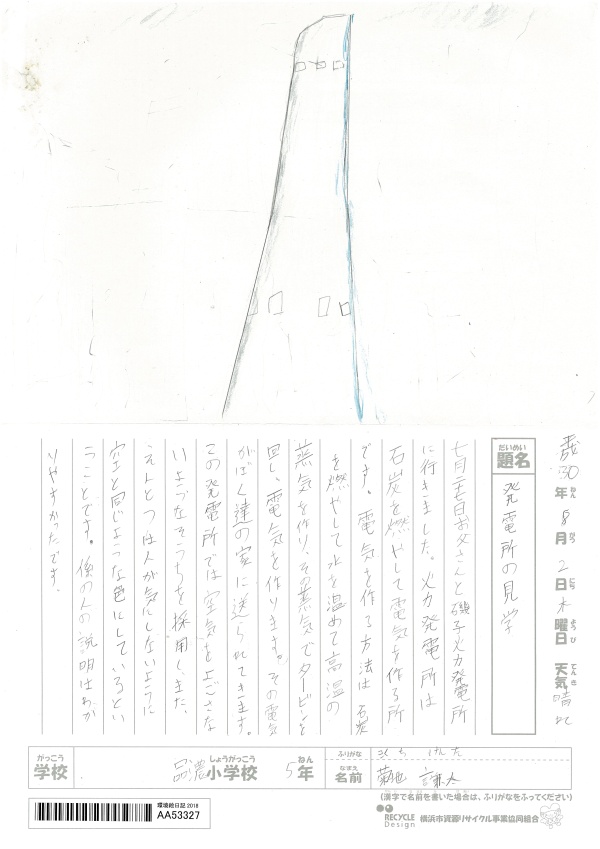 平成30年8月2日木曜日 天気 晴れ
ねん がつ にち ようび てんき
だいめい
題名
発電所の見学
七月二七日お父さんと磯子火力発電所
に行きました。火力発電所は
石炭を燃やして電気を作る所
です。電気を作る方法は石炭
を燃やして水を温めて高温の
蒸気を作り、その蒸気でタービンを
回し、電気を作ります。その電気
がぼく達の家に送られてきます。
この発電所では空気をよごさな
いようなそうちを採用しまた、
えんとつは人が気にしないように
空と同じような色にしているとい
うことです。係の人の説明はわか
りやすかったです。
がっこう
学校
品濃小学校
しょうがっこう
5年
ねん
ふりがな
きくち けんた
なまえ
名前
菊池 謙太
(漢字で名前を書いた場合は、ふりがなをふってください)
環境絵日記 2018
AA53327
RECYCLE Design
横浜市資源リサイクル事業協同組合